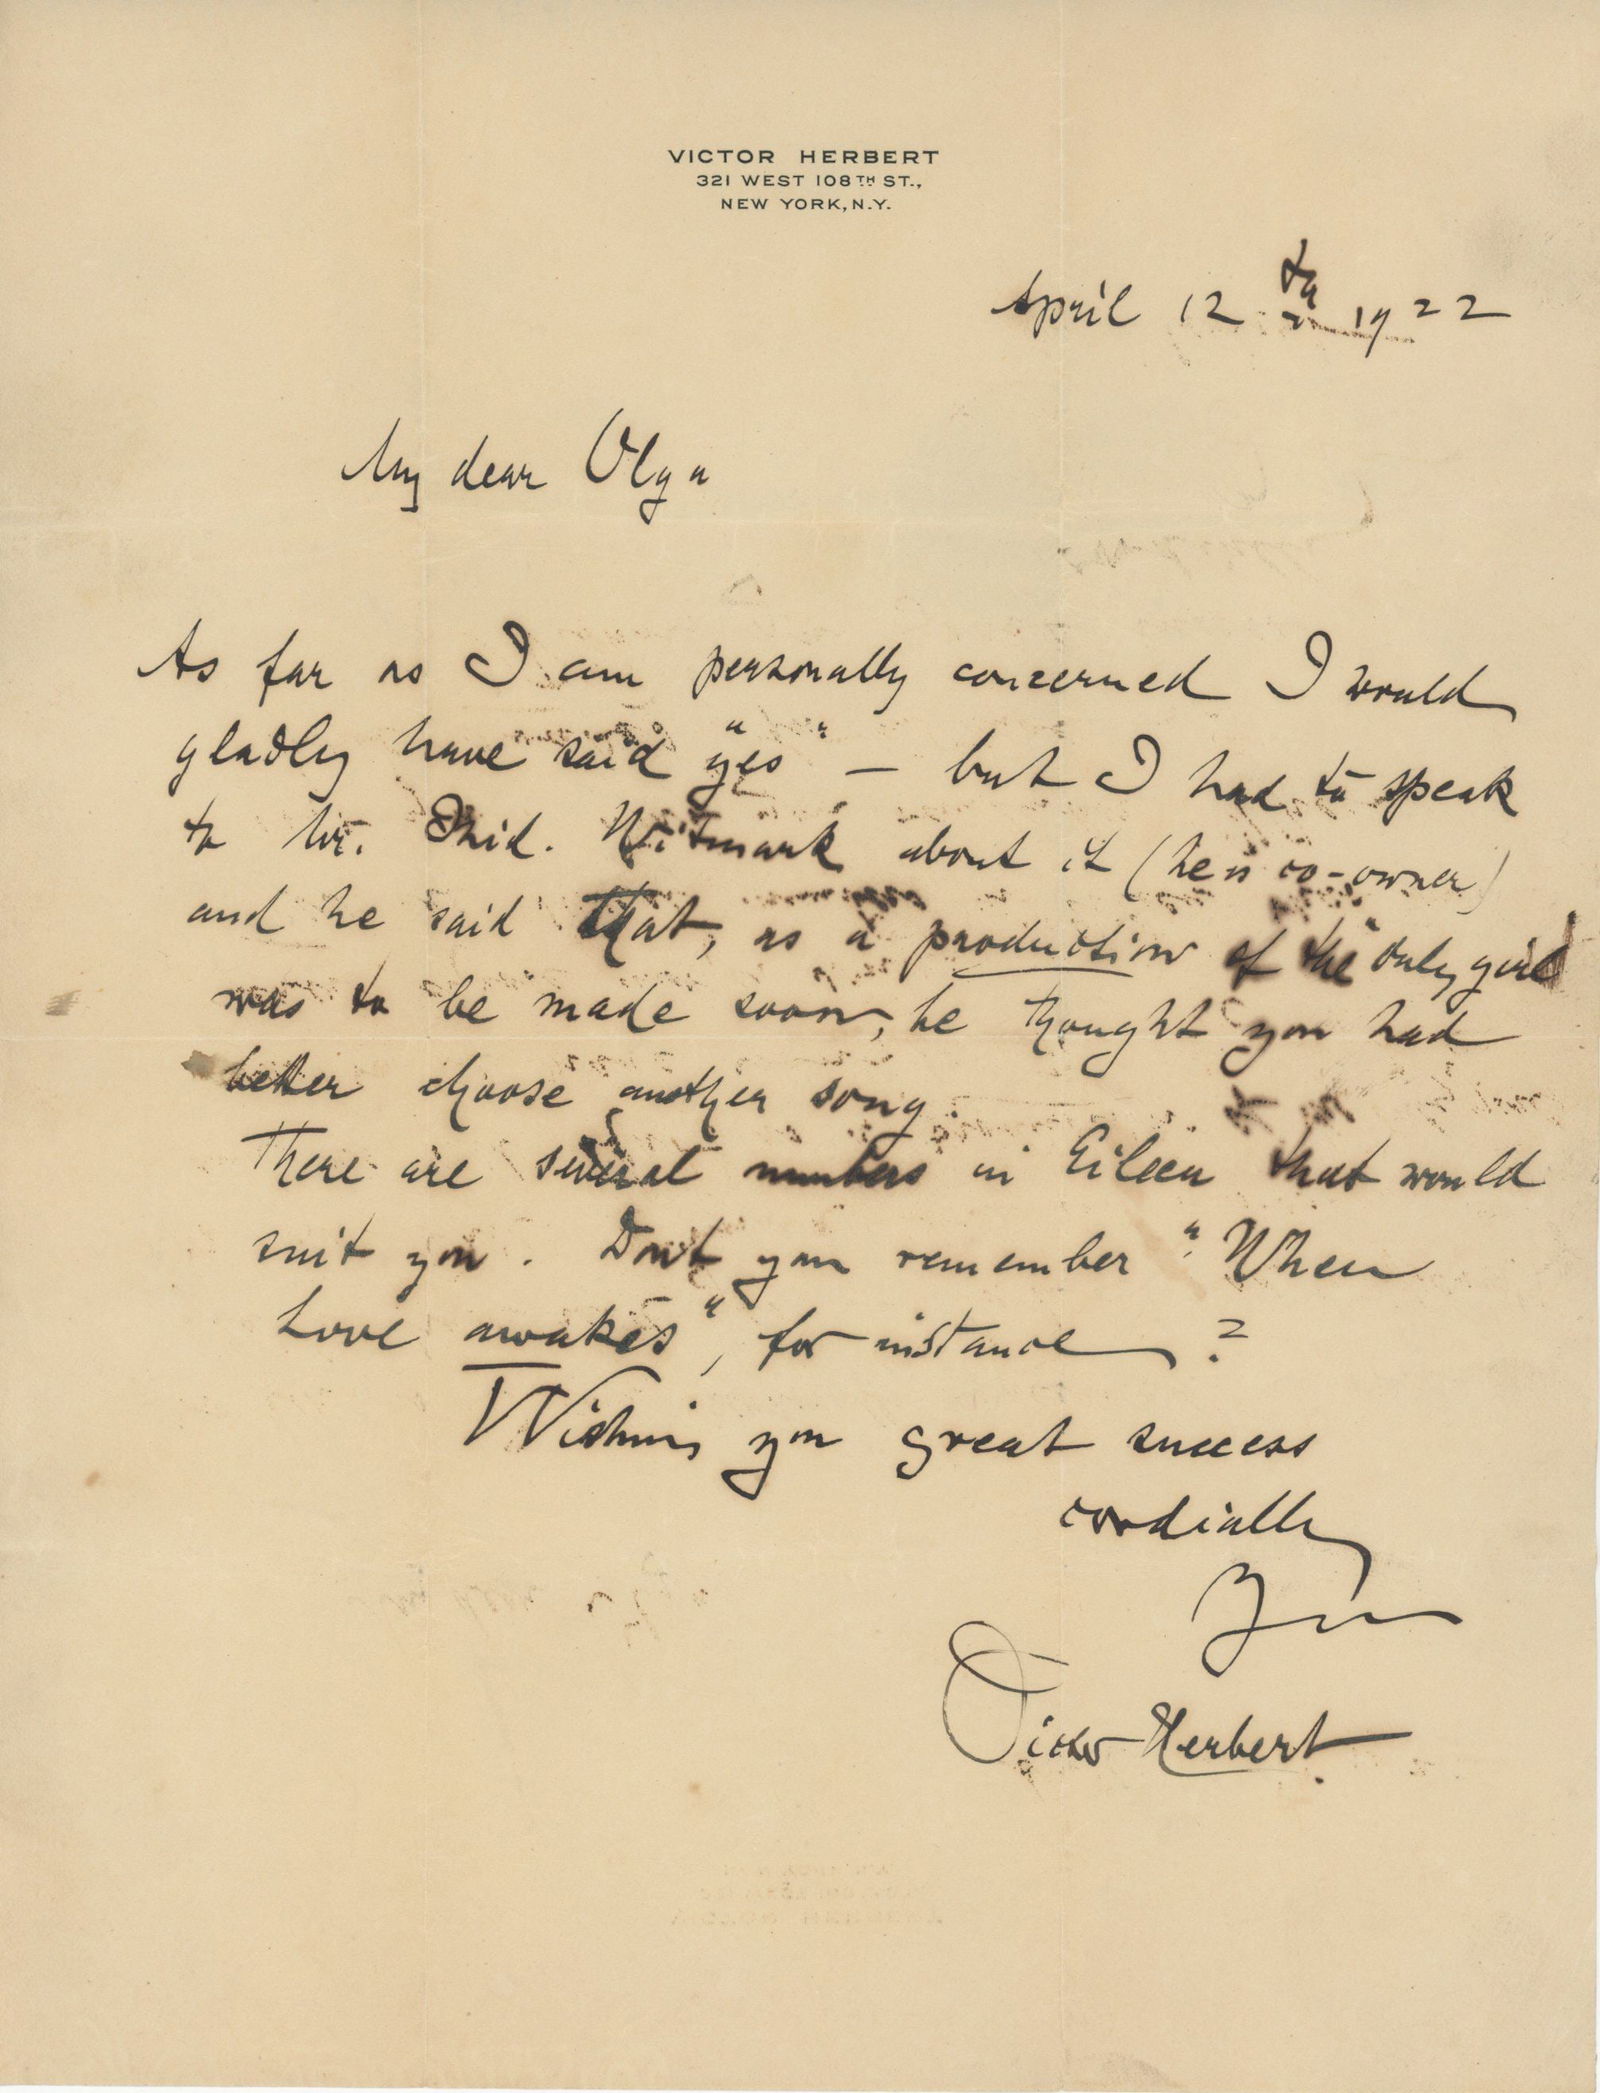 VICTOR HERBERT
321 WEST 108TH ST.,
NEW YORK, N.Y.
April 12th 1922
My dear Olga
As far as I am personally concerned I would
gladly have said "yes" — but I had to speak
to Mr. Isid. Witmark about it (he is co-owner)
and he said that, as a production of the "Only girl"
was to be made soon, he thought you had
better choose another song.
There are several numbers in Eileen that would
suit you. Dont you remember "When
Love awakes", for instance?
Wishing you great success
cordially
Yours
Victor Herbert